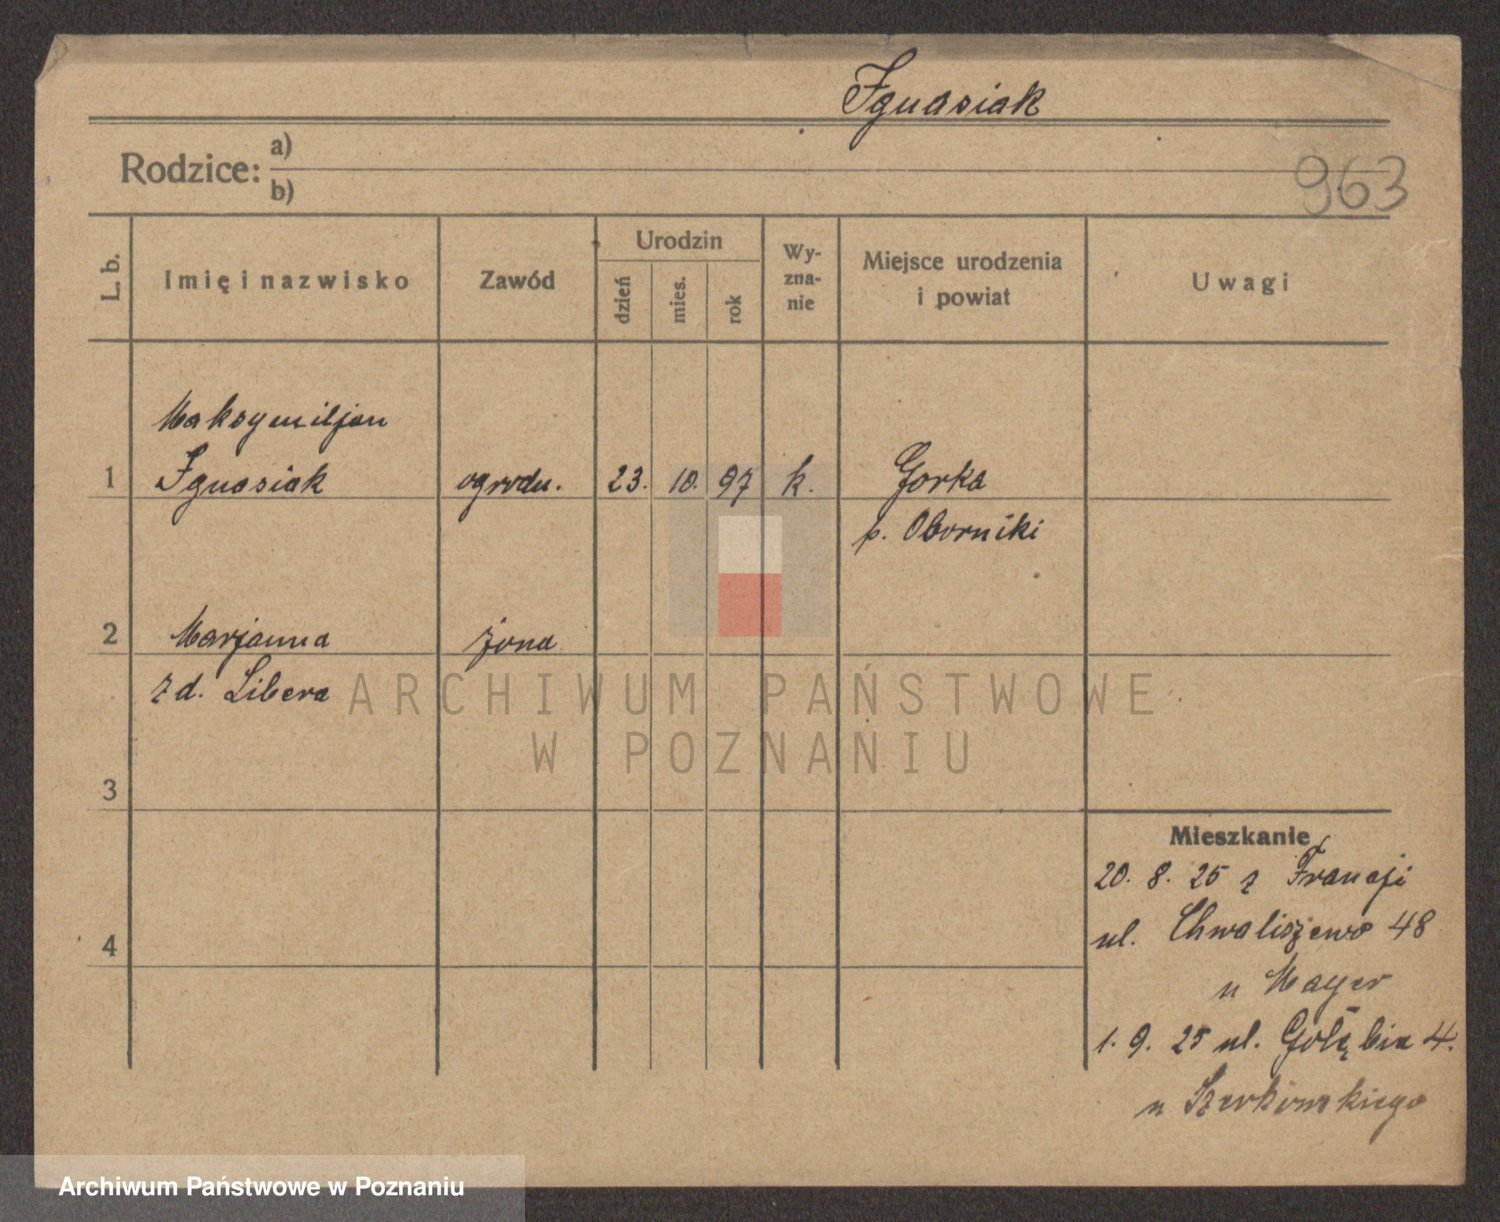 Ignasiak
Rodzice: a)
b)
963
L. b.
Imię i nazwisko
Zawód
Urodzin
dzień
mies.
rok
Wy-
zna-
nie
Miejsce urodzenia
i powiat
Uwagi
Maksymiljan
1 Ignasiak ogrodn. 23. 10. 97 k. Gorka
p. Oborniki
2 Marjanna żona
z d. Libera
ARCHIWUM PAŃSTWOWE
W POZNANIU
3
Mieszkanie
20. 8. 25 z Francji
ul. Chwaliszewo 48
4
u Mayer
1. 9. 25 ul. Gołębia 4.
u
Archiwum Państwowe w Poznaniu